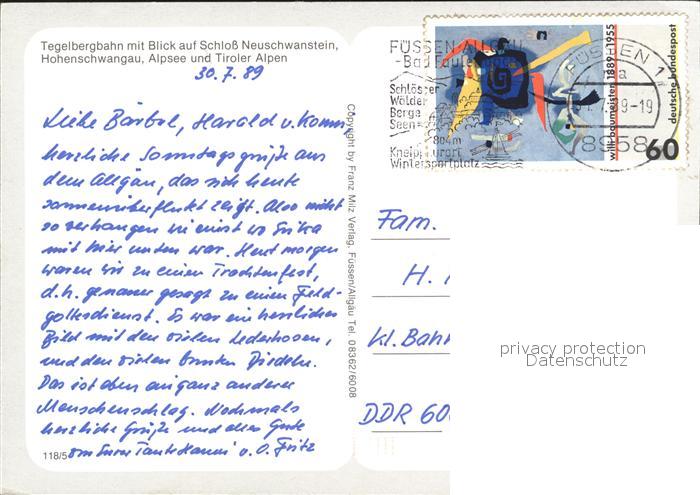 Tegelbergbahn mit Blick auf Schloß Neuschwanstein,
Hohenschwangau, Alpsee und Tiroler Alpen
30.7.89
Liebe Bärbel, Harald u.
herzliche Sonntagsgrüße aus
dem Allgäu, das sich heute
sonnenüberflutet zeigt. Also nicht
so verhangen wie einst wo Erika
mit hier unten war. Heut morgen
waren wir zu einem Trachtenfest,
d.h. genauer gesagt zu einem Feld-
gottesdienst. Es war ein herrliches
Bild mit den vielen Lederhosen,
und den vielen bunten Dirdeln.
Das ist eben ein ganz anderer
Menschenschlag. Nochmals
herzliche Grüße und alles Gute
von Eurer Tante Hanni u. O. Fritz
118/5
Copyright by Franz Milz Verlag, Füssen/Allgäu Tel. 08362/6008
FÜSSEN ALLGÄU
-Bad Faulenbach
Schlösser
Wälder
Berge
Seen
804m
Kneippkurort
Wintersportplatz
FÜSSEN 1
a
89-19
8958
willi baumeister 1889-1955
deutsche bundespost
60
Fam.
H.
Kl. Bahn
DDR 60
privacy protection
Datenschutz